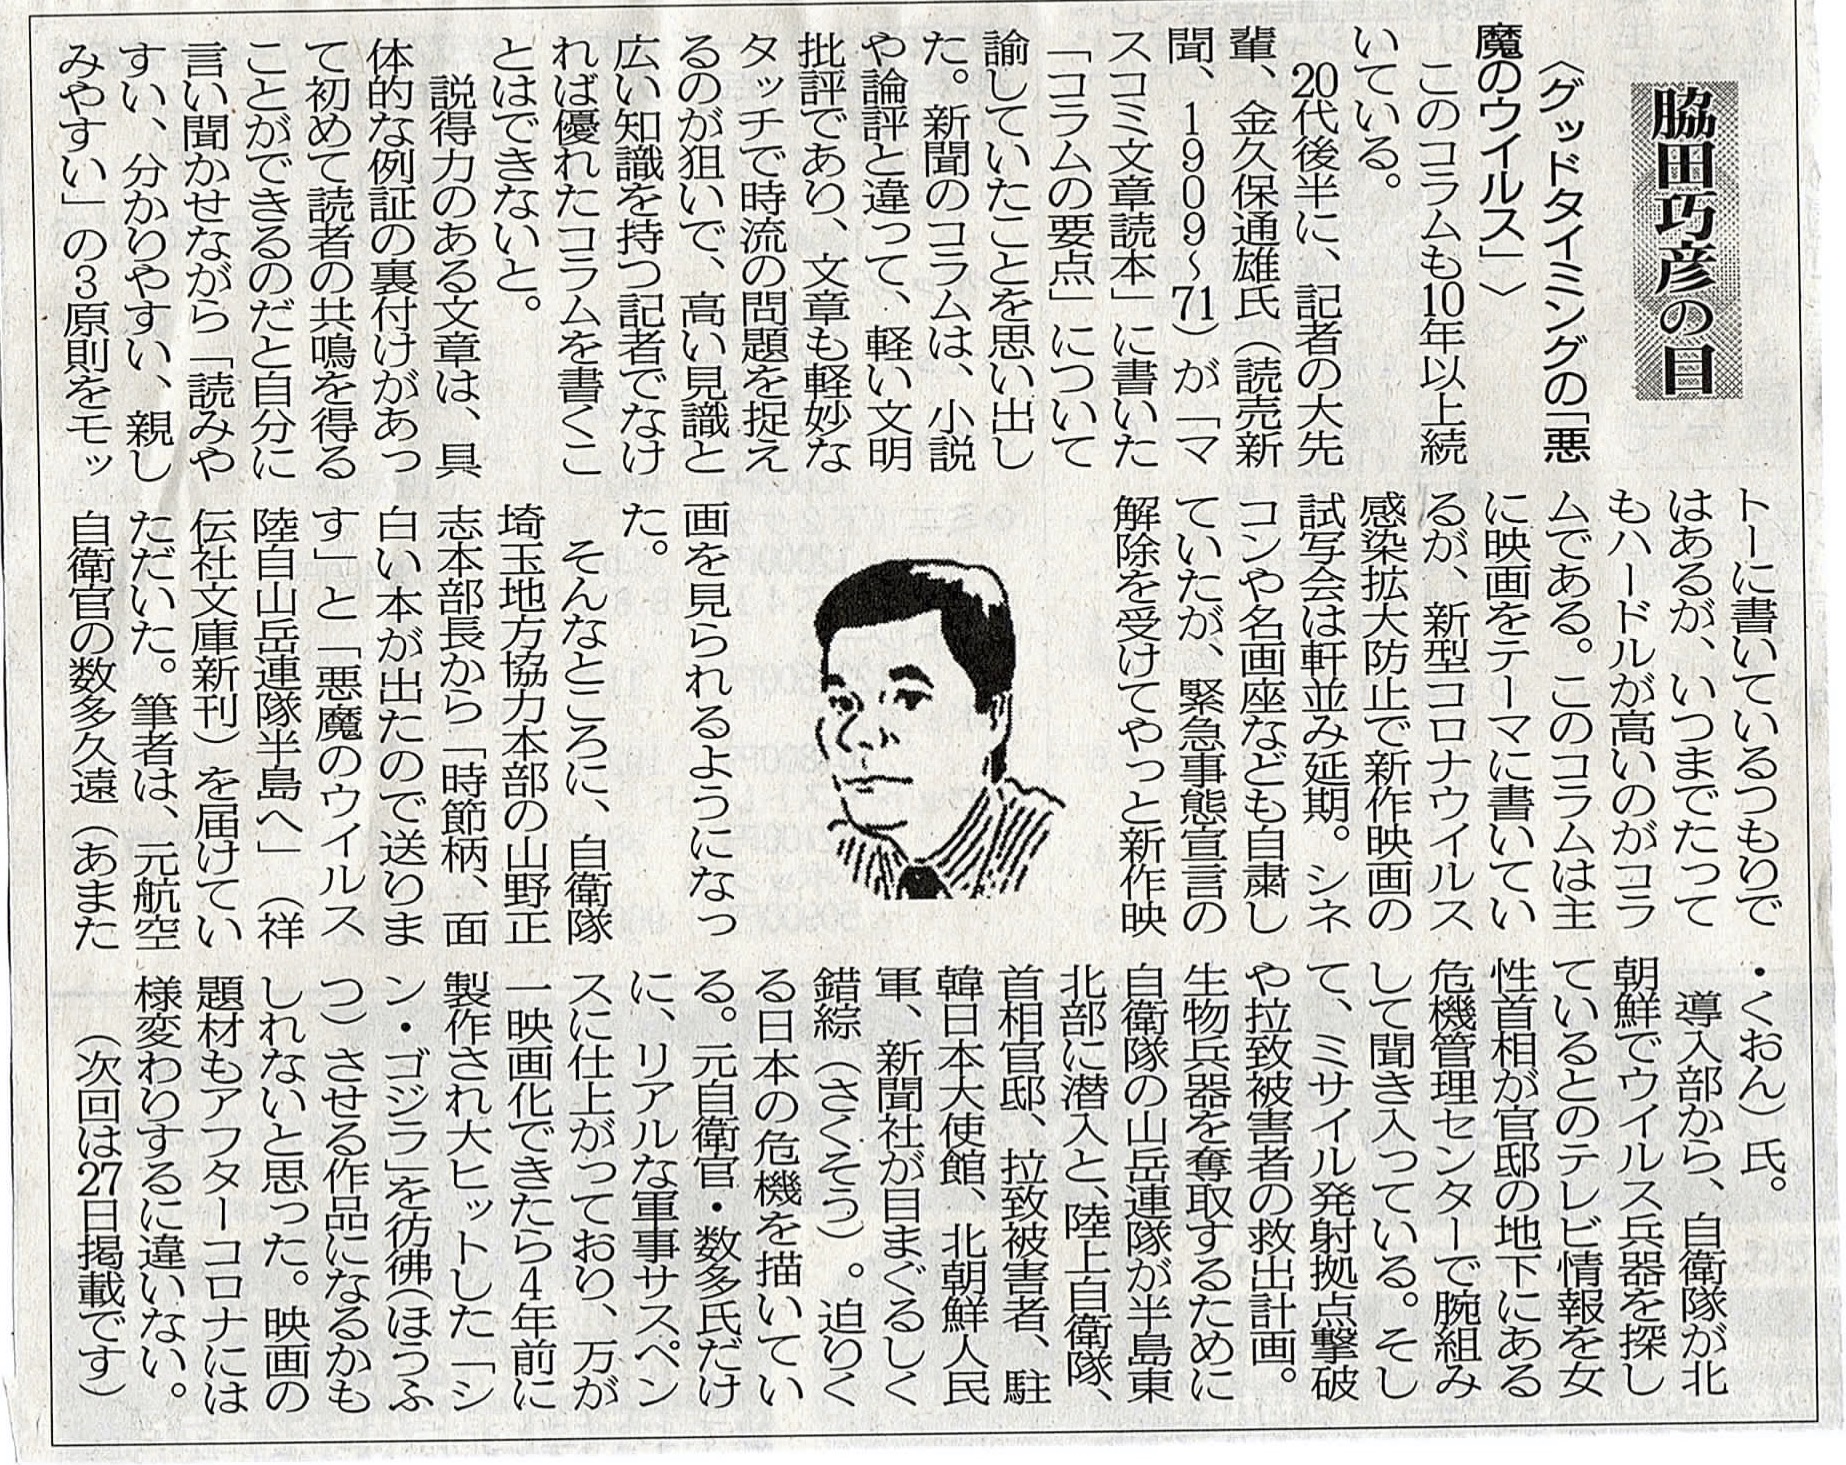 脇田巧彦の目
〈グッドタイミングの「悪
魔のウイルス」〉
このコラムも10年以上続
いている。
20代後半に、記者の大先
輩、金久保通雄氏（読売新
聞、1909〜71）が「マ
スコミ文章読本」に書いた
「コラムの要点」について
諭していたことを思い出し
た。新聞のコラムは、小説
や論評と違って、軽い文明
批評であり、文章も軽妙な
タッチで時流の問題を捉え
るのが狙いで、高い見識と
広い知識を持つ記者でなけ
れば優れたコラムを書くこ
とはできないと。
説得力のある文章は、具
体的な例証の裏付けがあっ
て初めて読者の共鳴を得る
ことができるのだと自分に
言い聞かせながら「読みや
すい、分かりやすい、親し
みやすい」の3原則をモッ
トーに書いているつもりで
はあるが、いつまでたって
もハードルが高いのがコラ
ムである。このコラムは主
に映画をテーマに書いてい
るが、新型コロナウイルス
感染拡大防止で新作映画の
試写会は軒並み延期。シネ
コンや名画座なども自粛し
ていたが、緊急事態宣言の
解除を受けてやっと新作映
画を見られるようになっ
た。
そんなところに、自衛隊
埼玉地方協力本部の山野正
志本部長から「時節柄、面
白い本が出たので送りま
す」と「悪魔のウイルス
陸自山岳連隊半島へ」（祥
伝社文庫新刊）を届けてい
ただいた。筆者は、元航空
自衛官の数多久遠（あまた
・くおん）氏。
導入部から、自衛隊が北
朝鮮でウイルス兵器を探し
ているとのテレビ情報を女
性首相が官邸の地下にある
危機管理センターで腕組み
して聞き入っている。そし
て、ミサイル発射拠点撃破
や拉致被害者の救出計画。
生物兵器を奪取するために
自衛隊の山岳連隊が半島東
北部に潜入と、陸上自衛隊、
首相官邸、拉致被害者、駐
韓日本大使館、北朝鮮人民
軍、新聞社が目まぐるしく
錯綜（さくそう）。迫りく
る日本の危機を描いてい
る。元自衛官・数多氏だけ
に、リアルな軍事サスペン
スに仕上がっており、万が
一映画化できたら4年前に
製作され大ヒットした「シ
ン・ゴジラ」を彷彿（ほうふ
つ）させる作品になるかも
しれないと思った。映画の
題材もアフターコロナには
様変わりするに違いない。
（次回は27日掲載です）